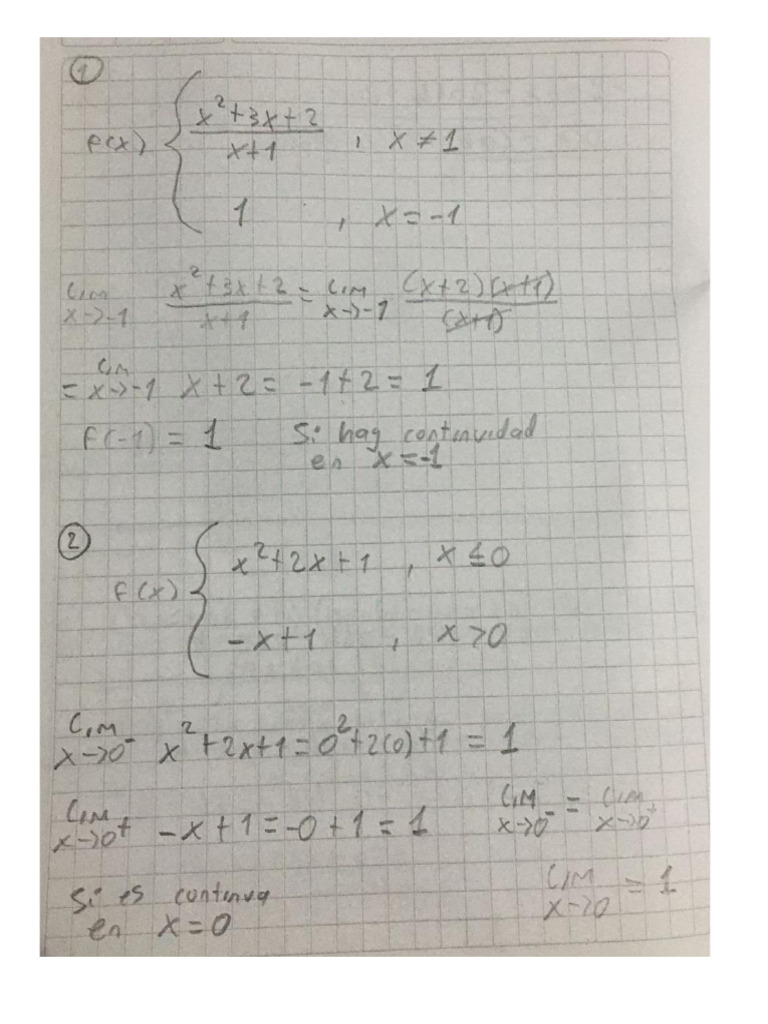 ①
f(x) { x²+3x+2 / x+1 , x ≠ 1
1 , x = -1
Lim x→-1 x²+3x+2 / x+1 = Lim x→-1 (x+2)(x+1) / (x+1)
= Lim x→-1 x+2 = -1+2 = 1
f(-1) = 1 Si hay continuidad
en x = -1
②
f(x) { x²+2x+1 , x ≤ 0
-x+1 , x > 0
Lim x→0⁻ x²+2x+1 = 0²+2(0)+1 = 1
Lim x→0⁺ -x+1 = -0+1 = 1 Lim x→0⁻ = Lim x→0⁺
Si es continua
en x = 0
Lim x→0 = 1